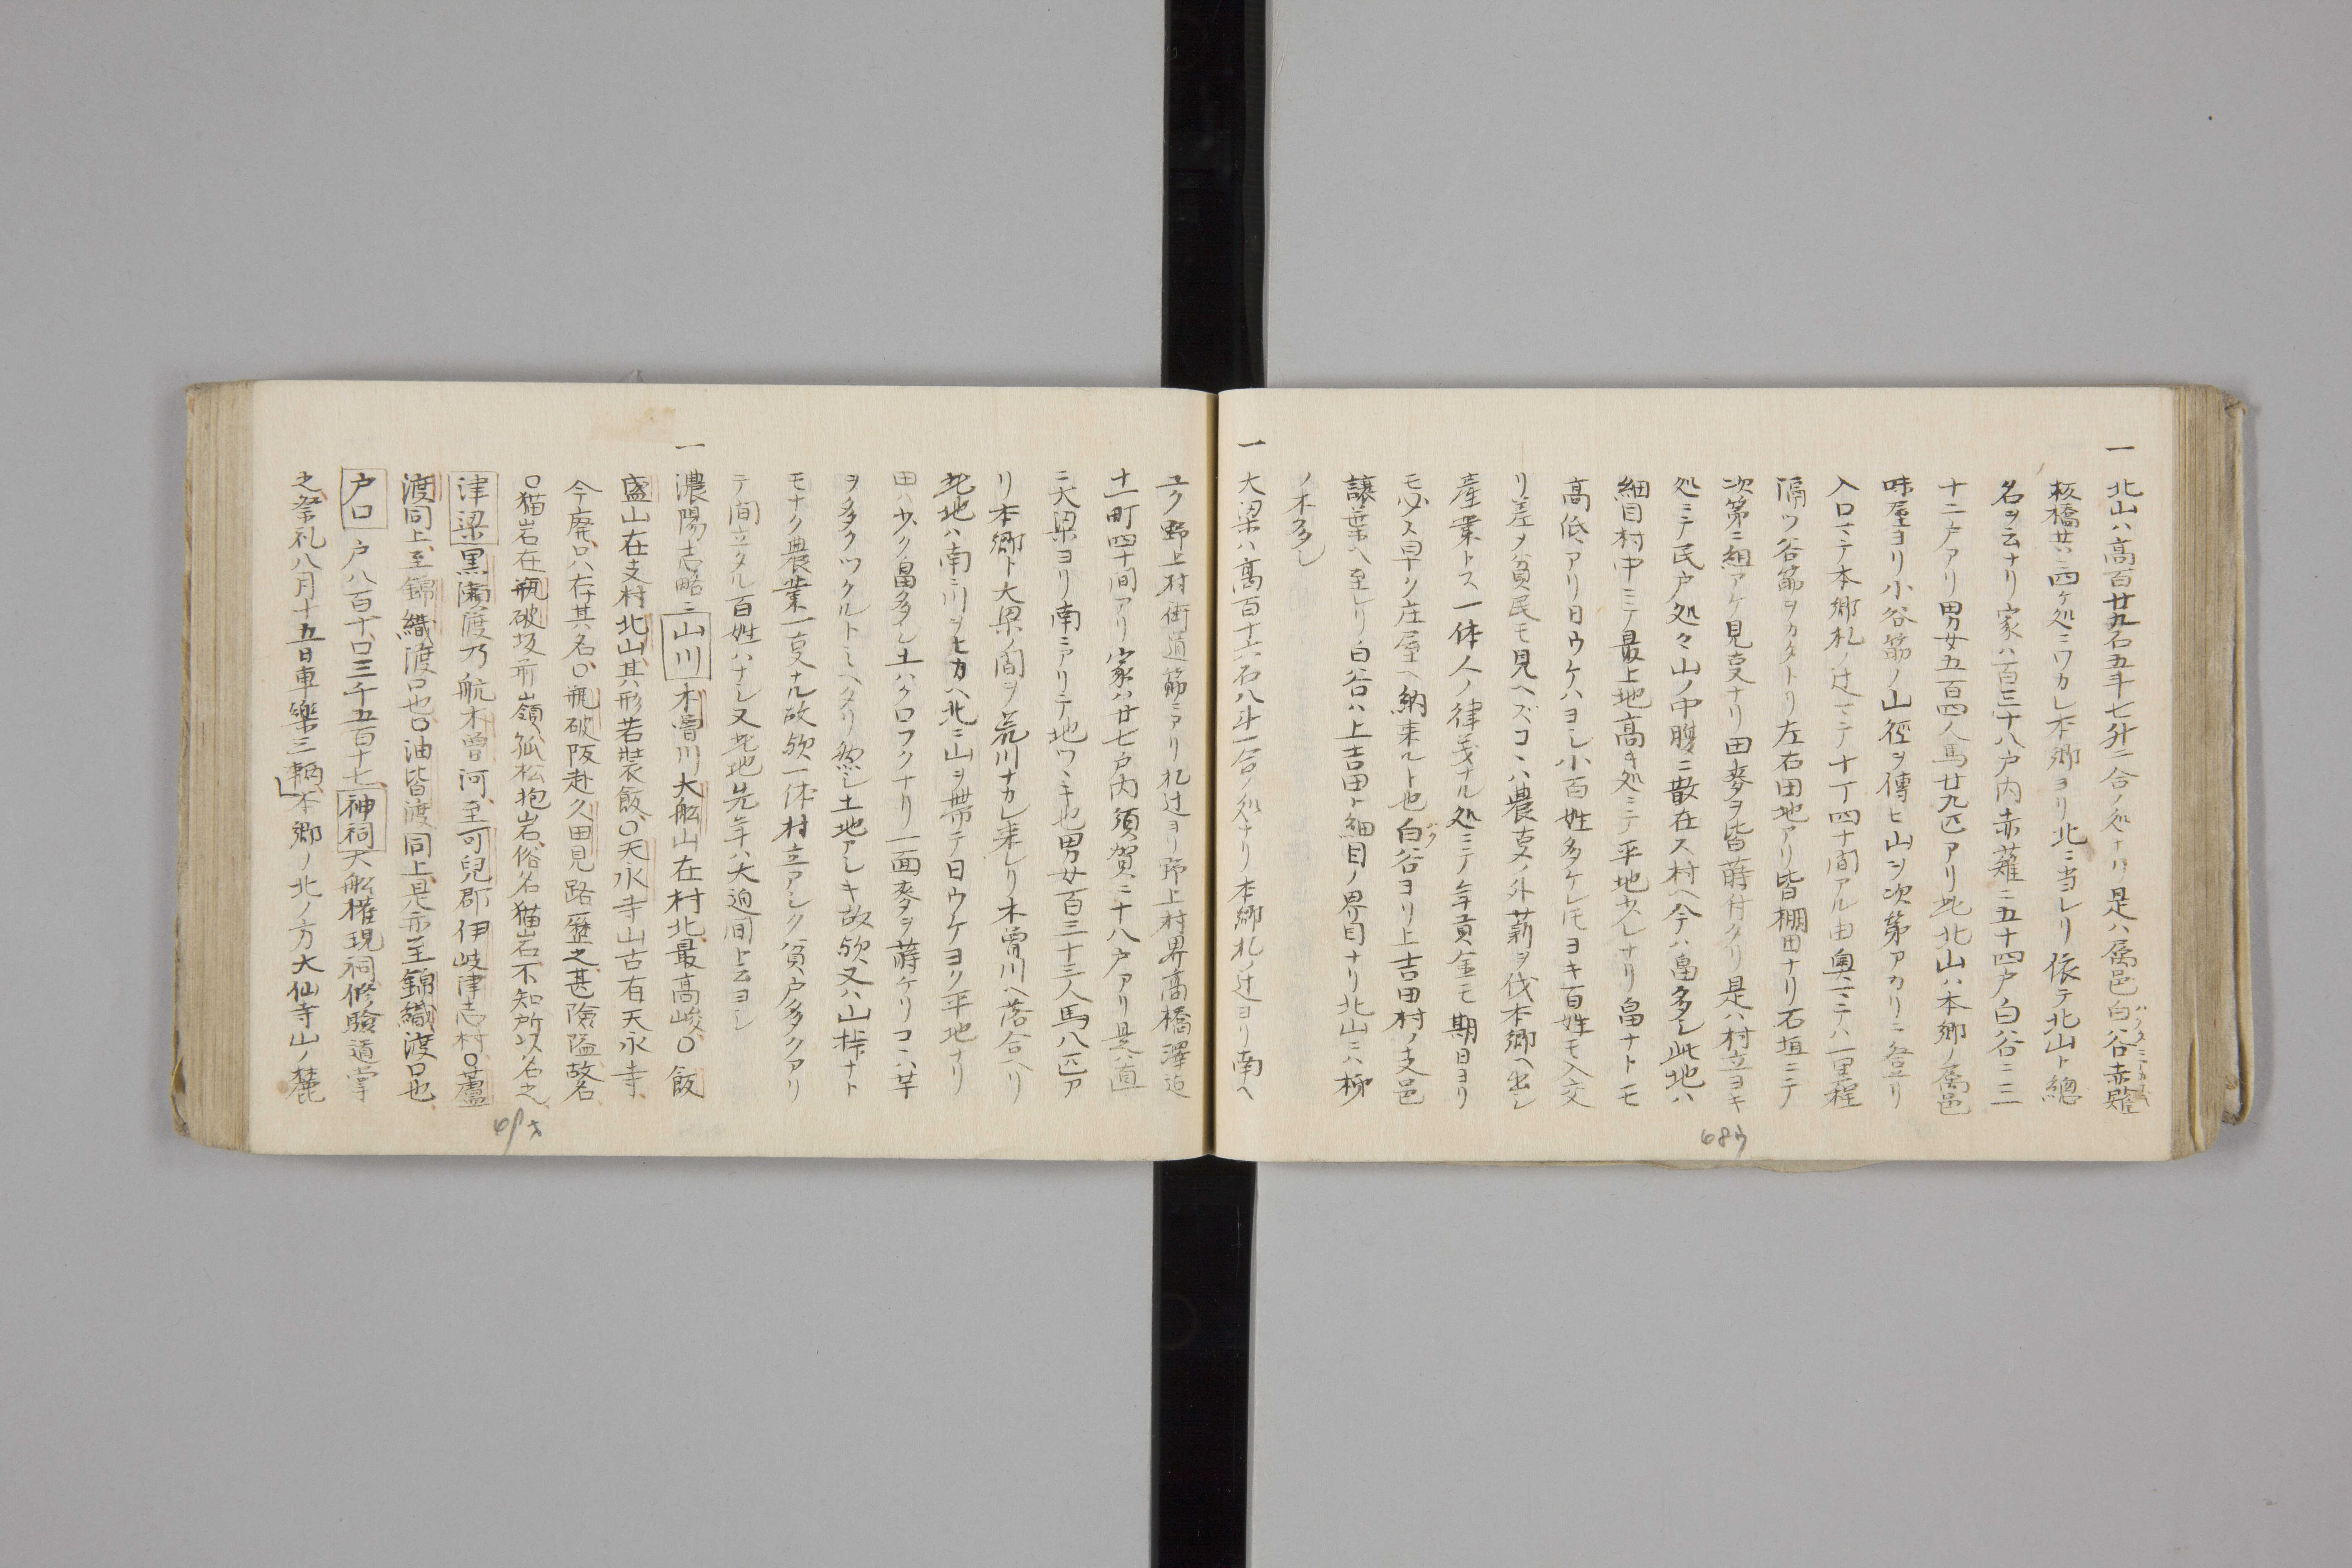 一 北山ハ高百廿九石五斗七升一合ノ処ナリ是ハ属邑白谷赤薙
板橋廿ハ四ケ処ニワカレ本郷ヨリ北ニ当レリ依テ北山ト總
名ヲ云ナリ家ハ百三十八戸内赤薙ニ五十四戸白谷ニ三
十二戸アリ男女五百四人馬廿九匹アリ此北山ハ本郷ノ属邑
味屋ヨリ小谷筋ノ山徑ヲ傳ヒ山ヲ次第アカリニ登リ
入口マテ本郷札ノ辻マテ十丁四十間アル由奥マテハ一里程
隔ツ谷筋ヲカタトリ左右田地アリ皆棚田ナリ石垣ニテ
次第ニ組アケ見叓ナリ田麥ヲ皆蒔付タリ是ハ村立ヨキ
処ニテ民戸処々山ノ中腹ニ散在ス村ヘ今ハ畠多シ此地ハ
細目村中ニテ最上地高キ処ニテ平地少レナリ畠ナトモ
高低アリ日ウケハヨシ小百姓多ケレ𪜈ヨキ百姓モ入交
リ差ヲ貧民モ見ヘズコヽハ農叓ノ外薪ヲ伐本郷ヘ出シ
産業トス一体人ノ律義ナル処ニテ年貢金モ期日ヨリ
モ必ス早ク庄屋ヘ納来ルト也白谷ヨリ上吉田村ノ支邑
譲葉ヘ至レリ白谷ハ上吉田ト細目ノ界目ナリ北山ニハ柳
ノ木多シ
一 大梁ハ高百十六石八斗一合ノ処ナリ本郷札ノ辻ヨリ南ヘ
ユク野上村街道筋ニアリ札辻ヨリ野上村界高橋澤迠
十一町四十間アリ家ハ廿七戸内須賀ニ十八戸アリ是ハ直
ニ大梁ヨリ南ニアリテ地ワヽキ也男女百三十三人馬八匹ア
リ本郷ト大梁ノ間ヲ荒川ナカレ来レリ木曽川ヘ落合ヘリ
此地ハ南ニ川ヲヒカヘ北ニ山ヲ帶テ日ウケヨク平地ナリ
田ハ少ク畠多シ土ハクロフクナリ一面麥ヲ蒔ケリコヽハ芋
ヲ多クツクルトミヘタリ惣シ土地アレキ故欤又ハ山挊ナト
モナク農業一叓ナル故欤一体村立アシク貧戸多クアリ
テ間立タル百姓ハナシ又此地先年ハ大迫間ト云ヨシ
一 濃陽志略ニ山川木曽川大舩山在村北最高峻〇飯
盛山在支村北山其ハ形若裝飯〇天永寺山古有天永寺
今廃只ハ存其名〇瓶破阪赴久田見路歴之甚險隘故名
〇猫岩在瓶破坂前嶺孤松抱岩俗名猫岩不知所以名之
津梁黒瀬渡乃航木曽河至可兒郡伊岐津志村〇蘆
渡同上至錦織渡口也〇油皆渡同上是亦至錦織渡口也
戸口戸八百十口三千五百十七神祠大舩権現祠修驗道掌
之祭礼八月十五日車樂三輌」本郷ノ北ノ方大仙寺山ノ麓